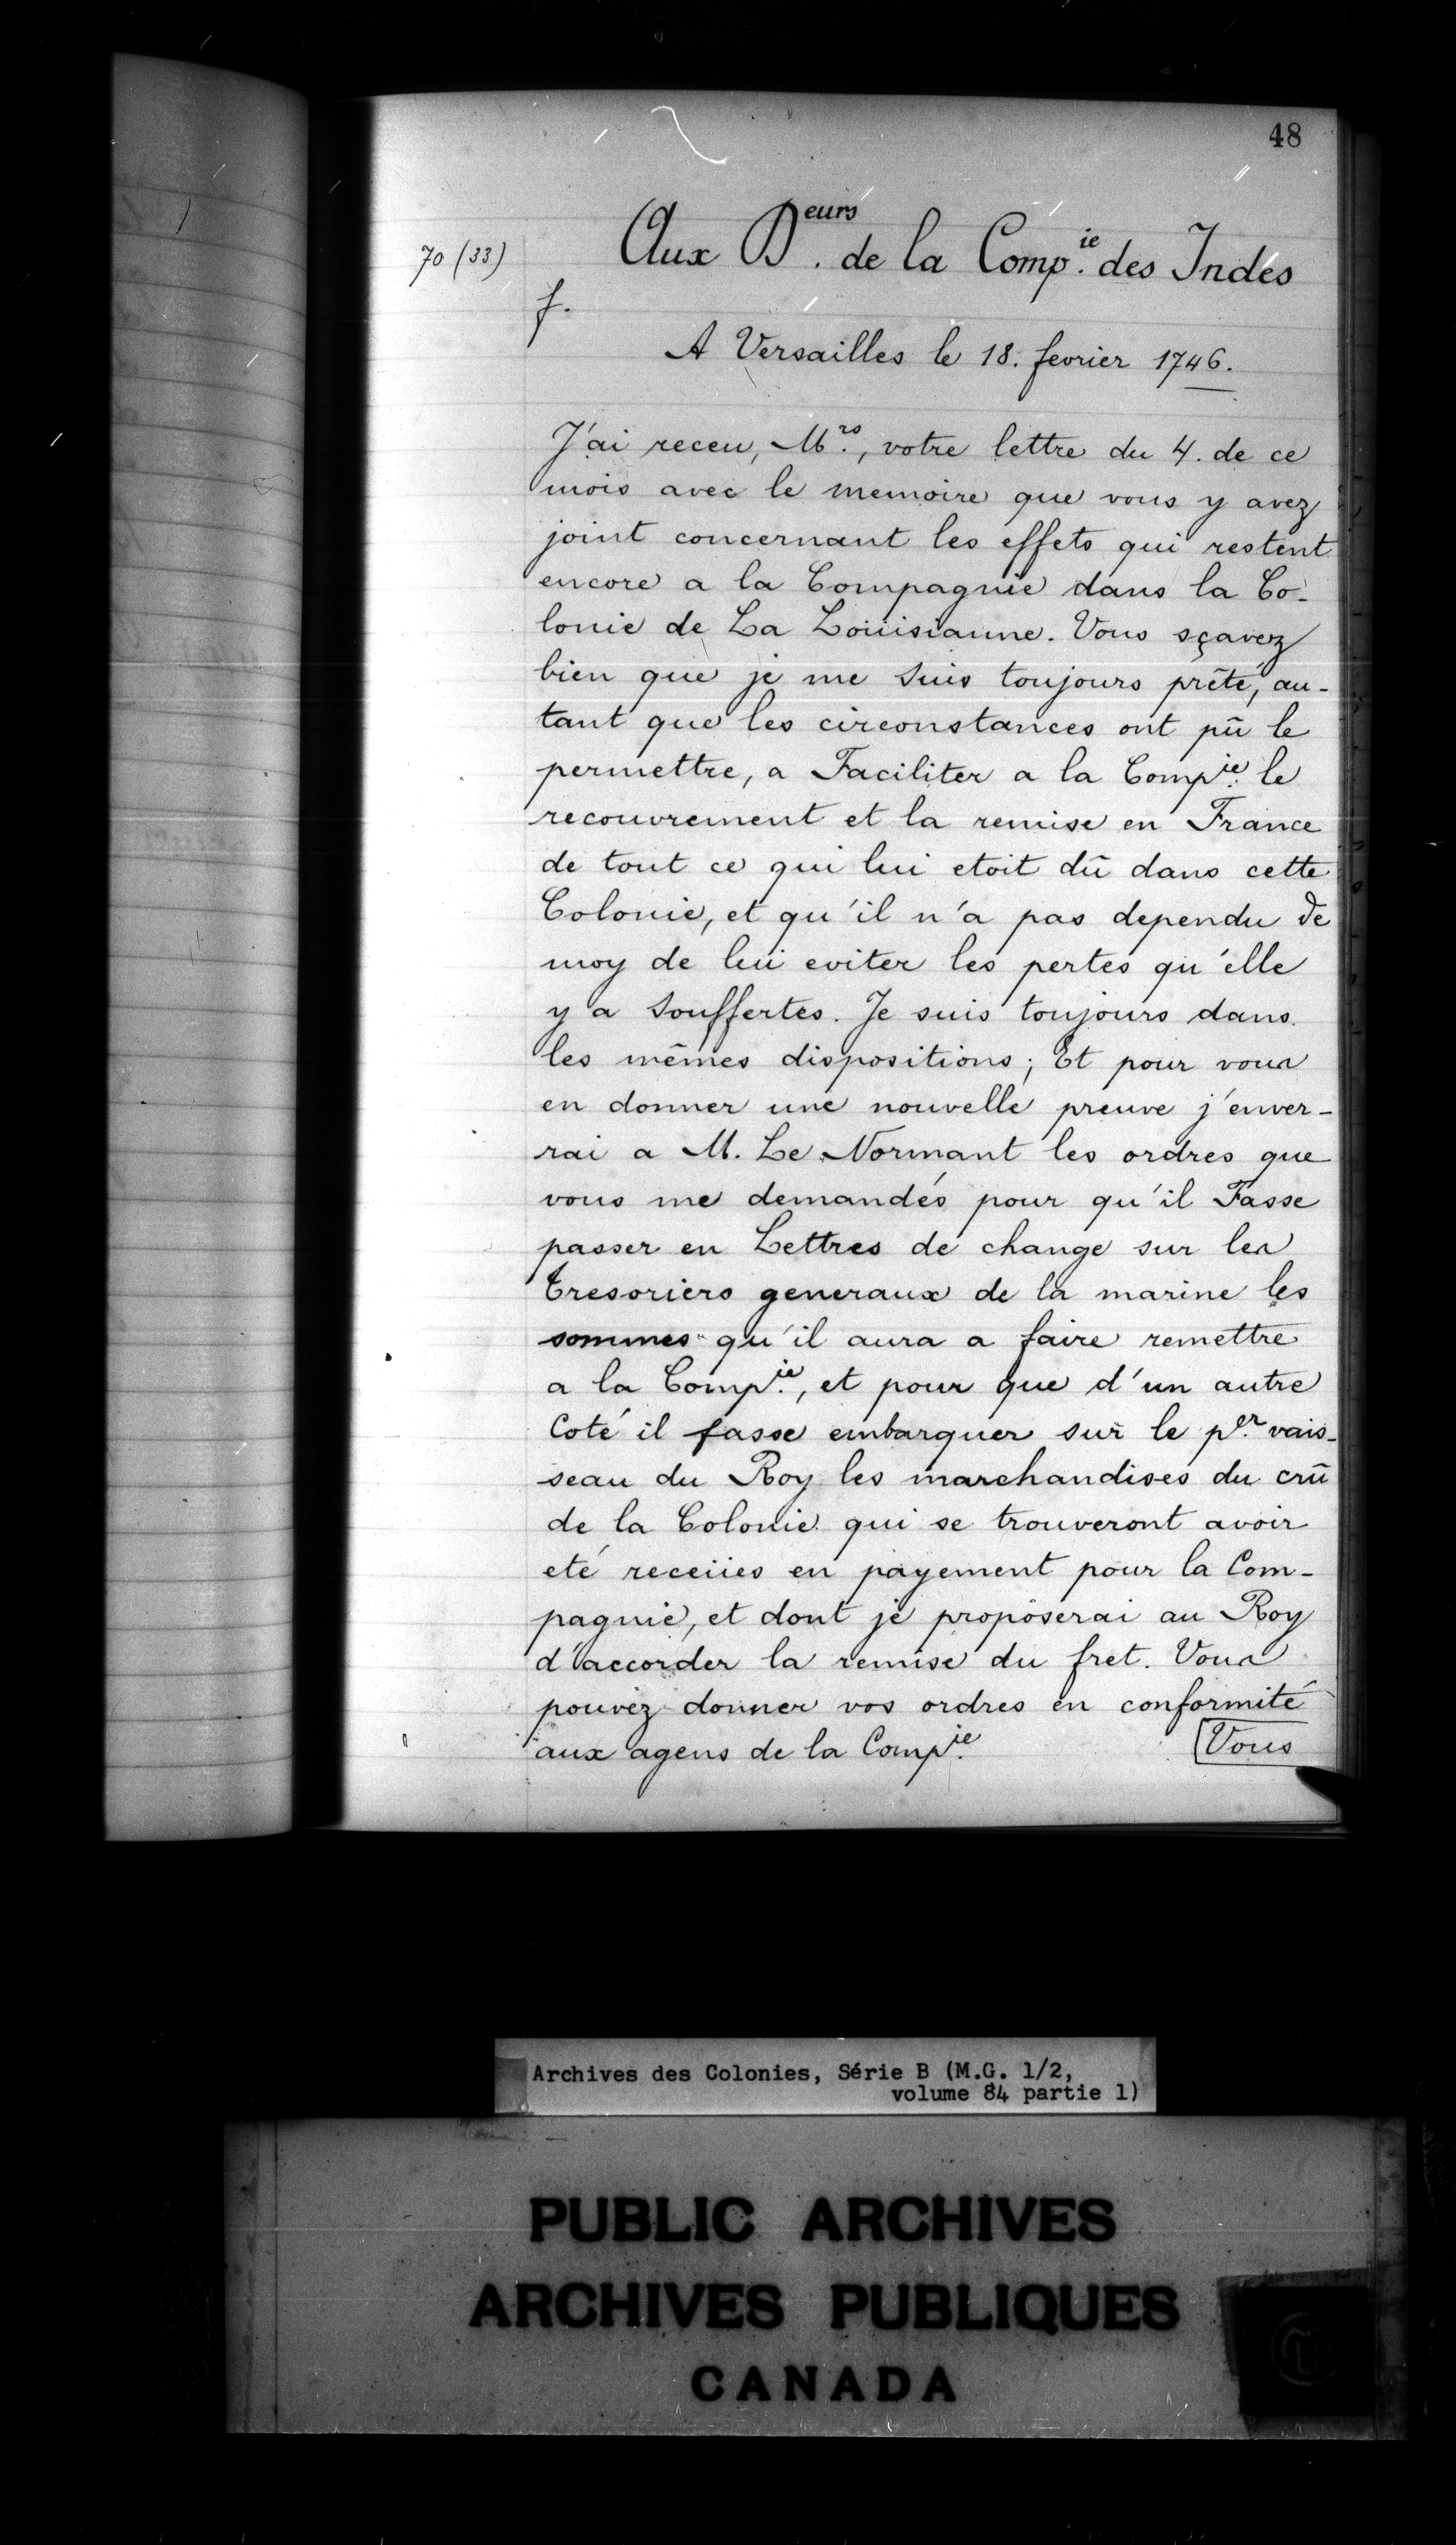 48
70 (33)
Aux D.eurs de la Comp.ie des Indes
f.
A Versailles le 18. fevrier 1746.
J'ai receu, M.rs, votre lettre du 4. de ce
mois avec le memoire que vous y avez
joint concernant les effets qui restent
encore a la Compagnie dans la Co-
lonie de La Loüisianne. Vous sçavez
bien que je me suis toujours prêté, au-
tant que les circonstances ont pû le
permettre, a Faciliter a la Comp.ie le
recouvrement et la remise en France
de tout ce qui lui etoit dû dans cette
Colonie, et qu'il n'a pas dependu de
moy de lui eviter les pertes qu'elle
y a souffertes. Je suis toujours dans
les mêmes dispositions; Et pour vous
en donner une nouvelle preuve j'enver-
rai a M. Le Normant les ordres que
vous me demandés pour qu'il Fasse
passer en Lettres de change sur les
tresoriers generaux de la marine les
sommes qu'il aura a faire remettre
a la Comp.ie, et pour que d'un autre
Coté il fasse embarquer sur le p.er vais-
seau du Roy les marchandises du crû
de la Colonie qui se trouveront avoir
eté receües en payement pour la Com-
pagnie, et dont je proposerai au Roy
d'accorder la remise du fret. Vous
pouvez donner vos ordres en conformité
aux agens de la Comp.ie
Vous
Archives des Colonies, Série B (M.G. 1/2,
volume 84 partie 1)
PUBLIC ARCHIVES
ARCHIVES PUBLIQUES
CANADA